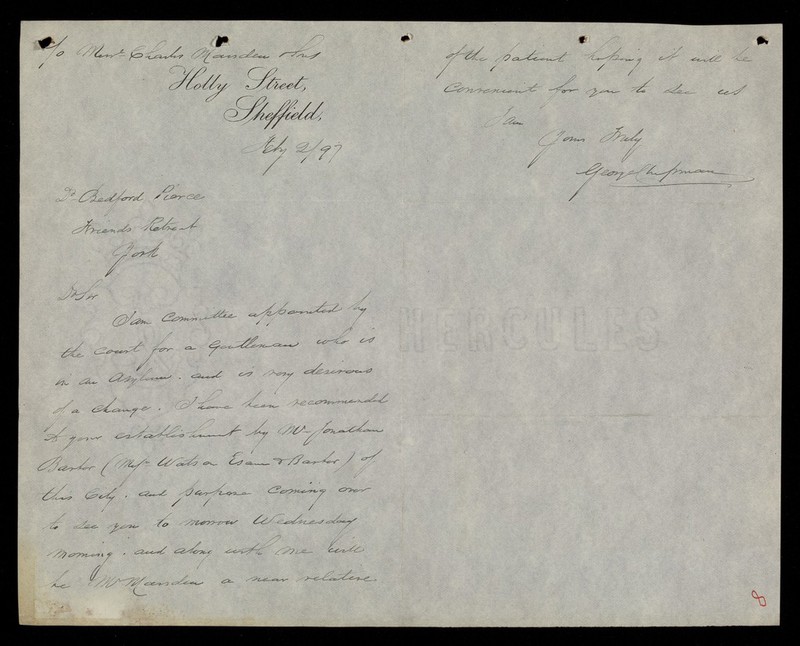 c/o Messrs Charles Marsden & Sons
Holly Street,
Sheffield,
Feby 2/97
Dr Bedford Pierce
Friends Retreat
York
Dr Sir
I am Committee appointed by
the court for a Gentleman who is
in an Asylum. and is very desirous
of a change. I have been recommended
to your establishment by Mr Jonathan
Barber (Messrs Watson Esam & Barber) of
this City. and purpose coming over
to see you to morrow Wednesday
morning. and along with me will
be Mr Marsden a near relative
of the patient hoping it will be
convenient for you to see us
I am
Yours Truly
George Chapman
HERCULES
8